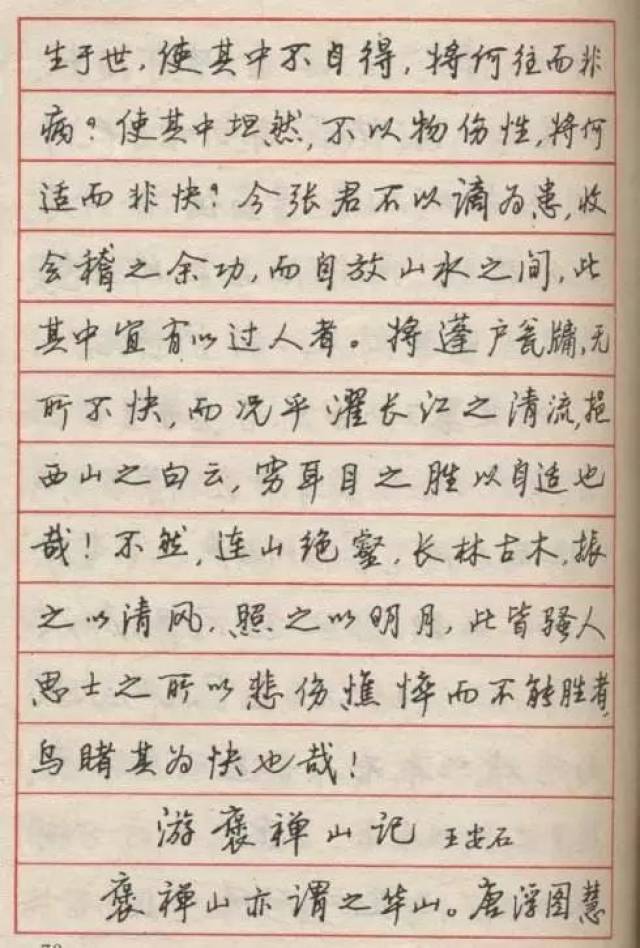 生于世，使其中不自得，将何往而非
病？使其中坦然，不以物伤性，将何
适而非快？今张君不以谪为患，收
会稽之余功，而自放山水之间，此
其中宜有以过人者。将蓬户瓮牖，无
所不快，而况乎濯长江之清流，挹
西山之白云，穷耳目之胜以自适也
哉！不然，连山绝壑，长林古木，振
之以清风，照之以明月，此皆骚人
思士之所以悲伤憔悴而不能胜者，
乌睹其为快也哉！
游褒禅山记 王安石
褒禅山亦谓之华山。唐浮图慧